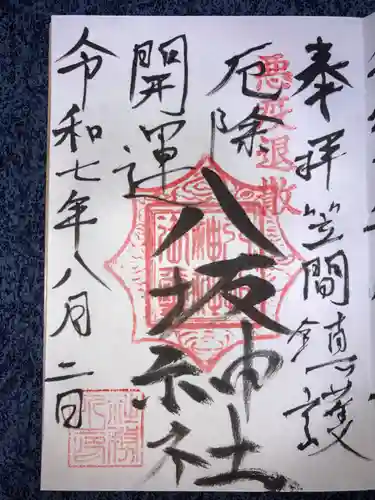 奉拝 笠間鎮護
悪疫退散
厄除
八坂神社
開運
令和七年八月二日